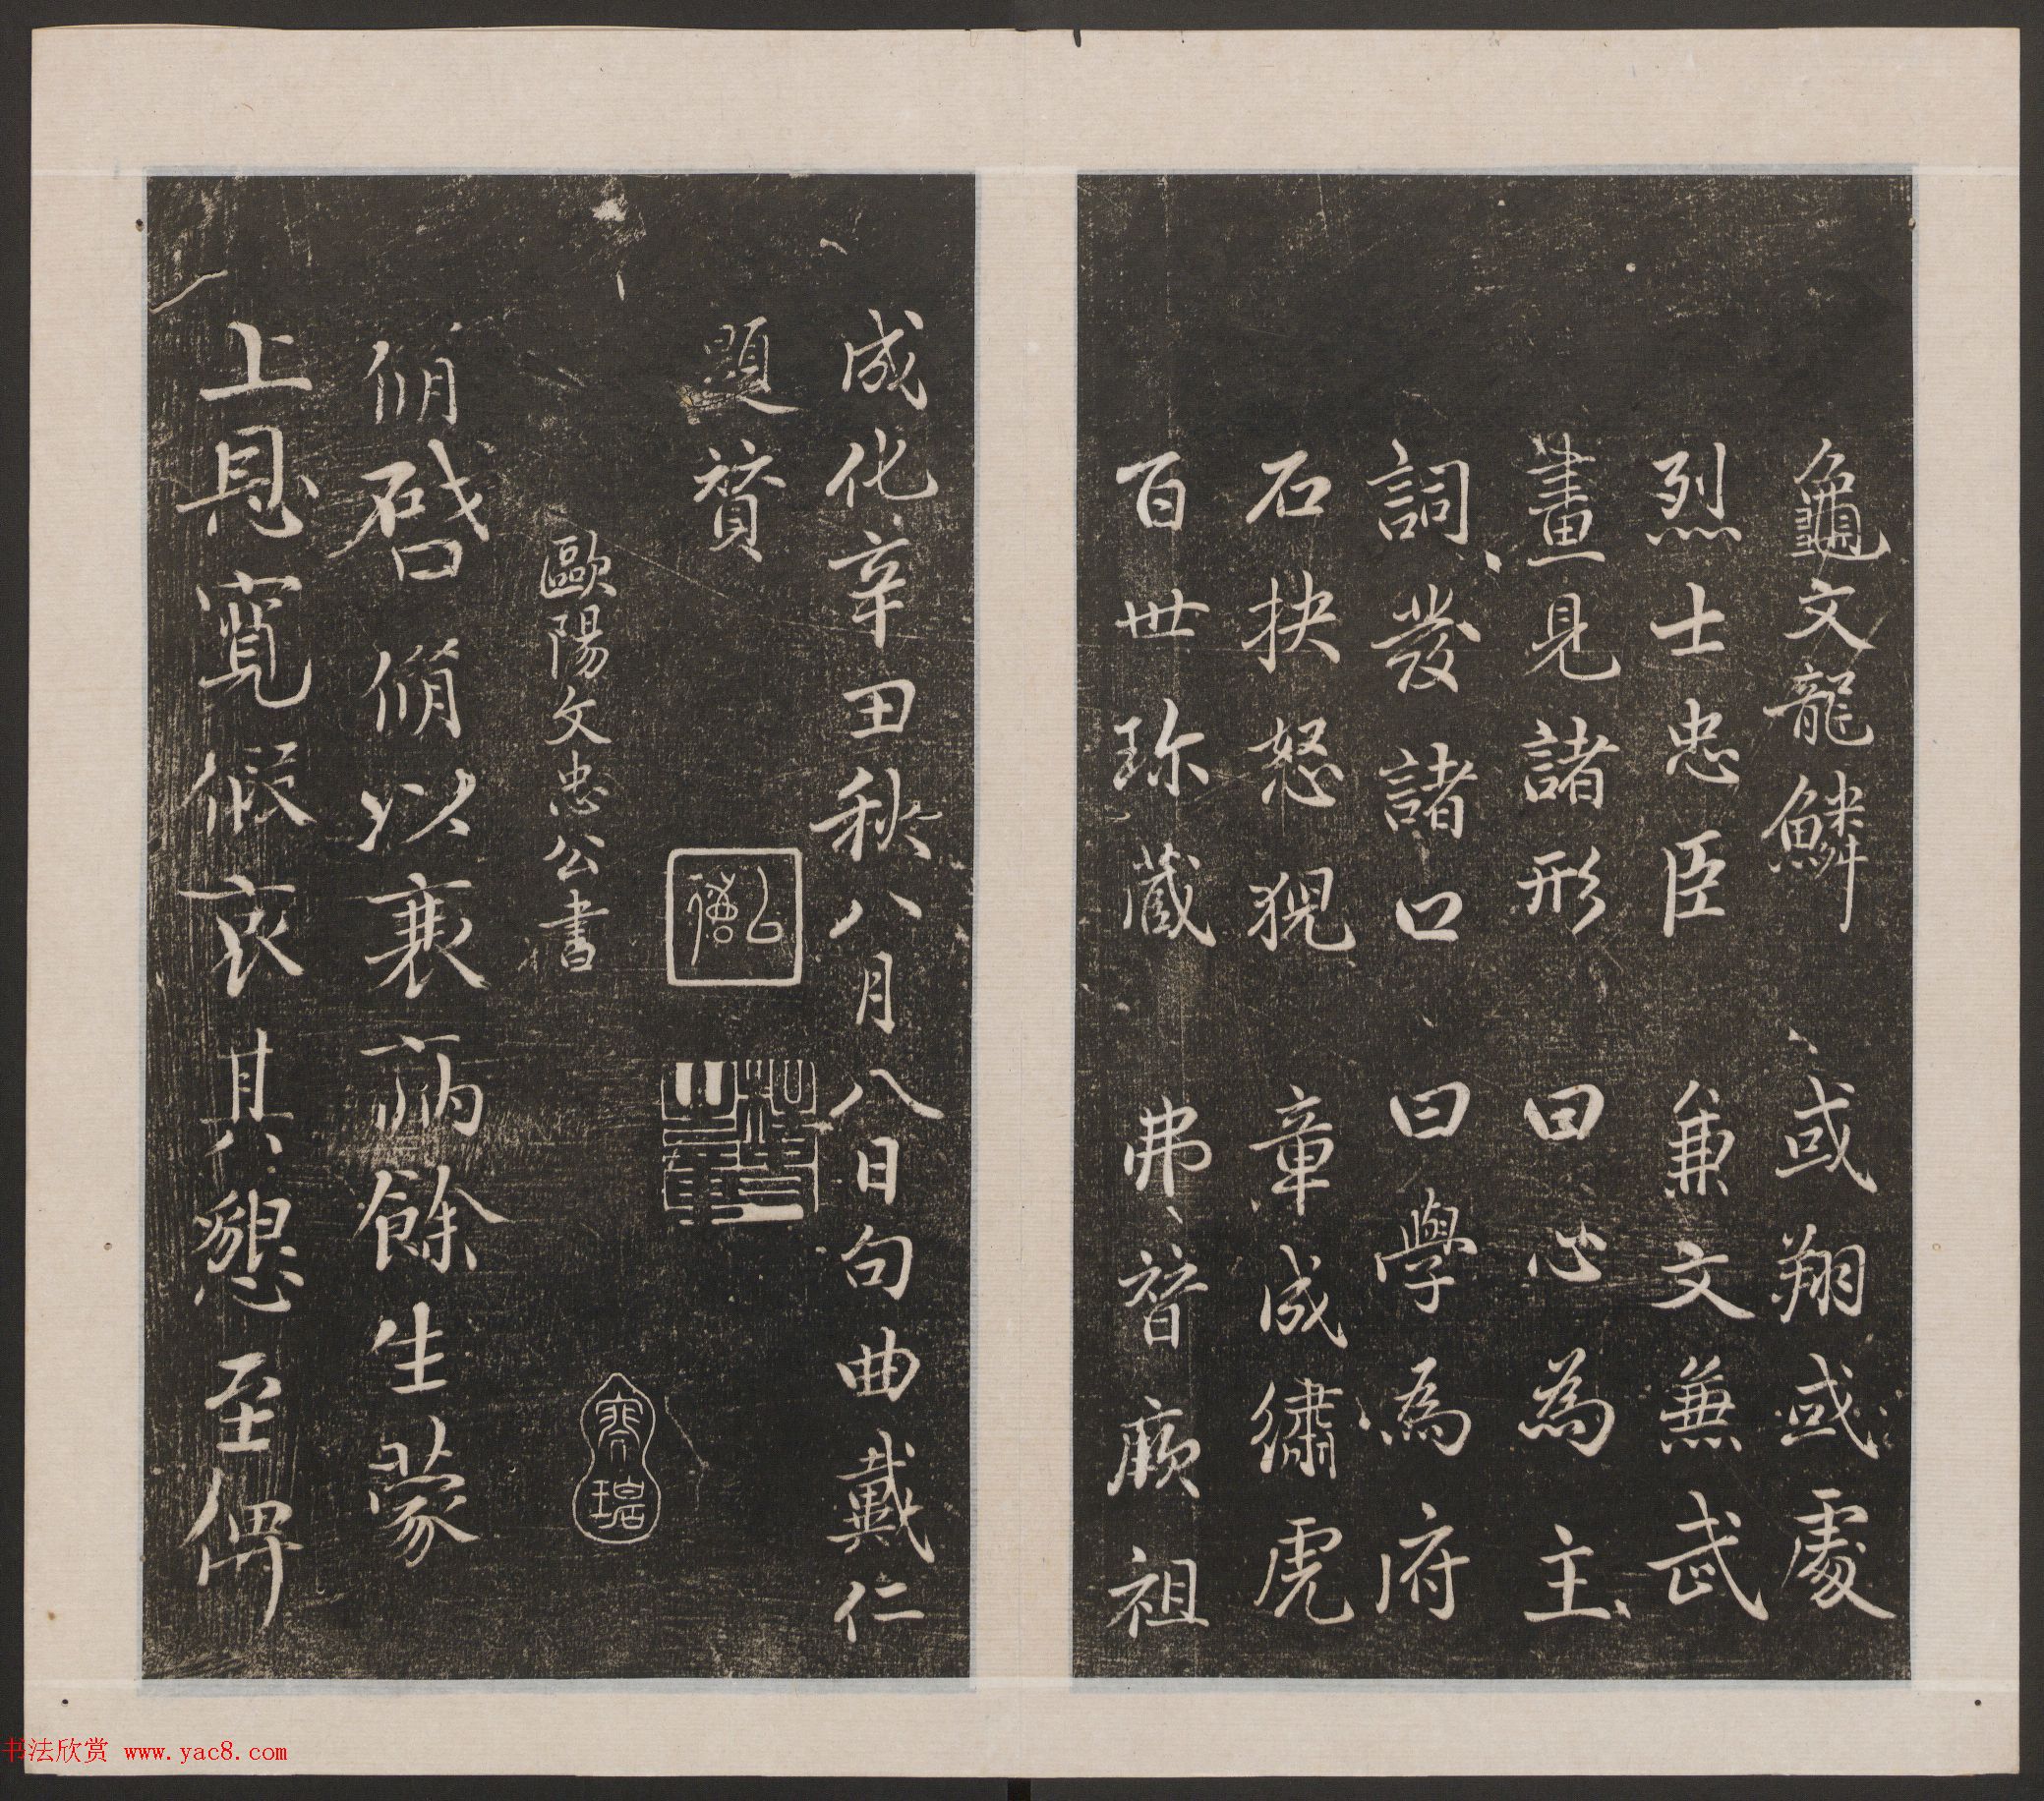 龜文龍鱗 或翔或處
烈士忠臣 兼文兼武
畫見諸形 曰心為主
詞發諸口 曰學為府
石抉怒猊 章成繡虎
百世珎藏 弗替厥祖
成化辛丑秋八月八日句曲戴仁
題贊
歐陽文忠公書
脩啓脩以衰病餘生蒙
上恩寬假哀其懇至俾
书法欣赏 www.yac8.com